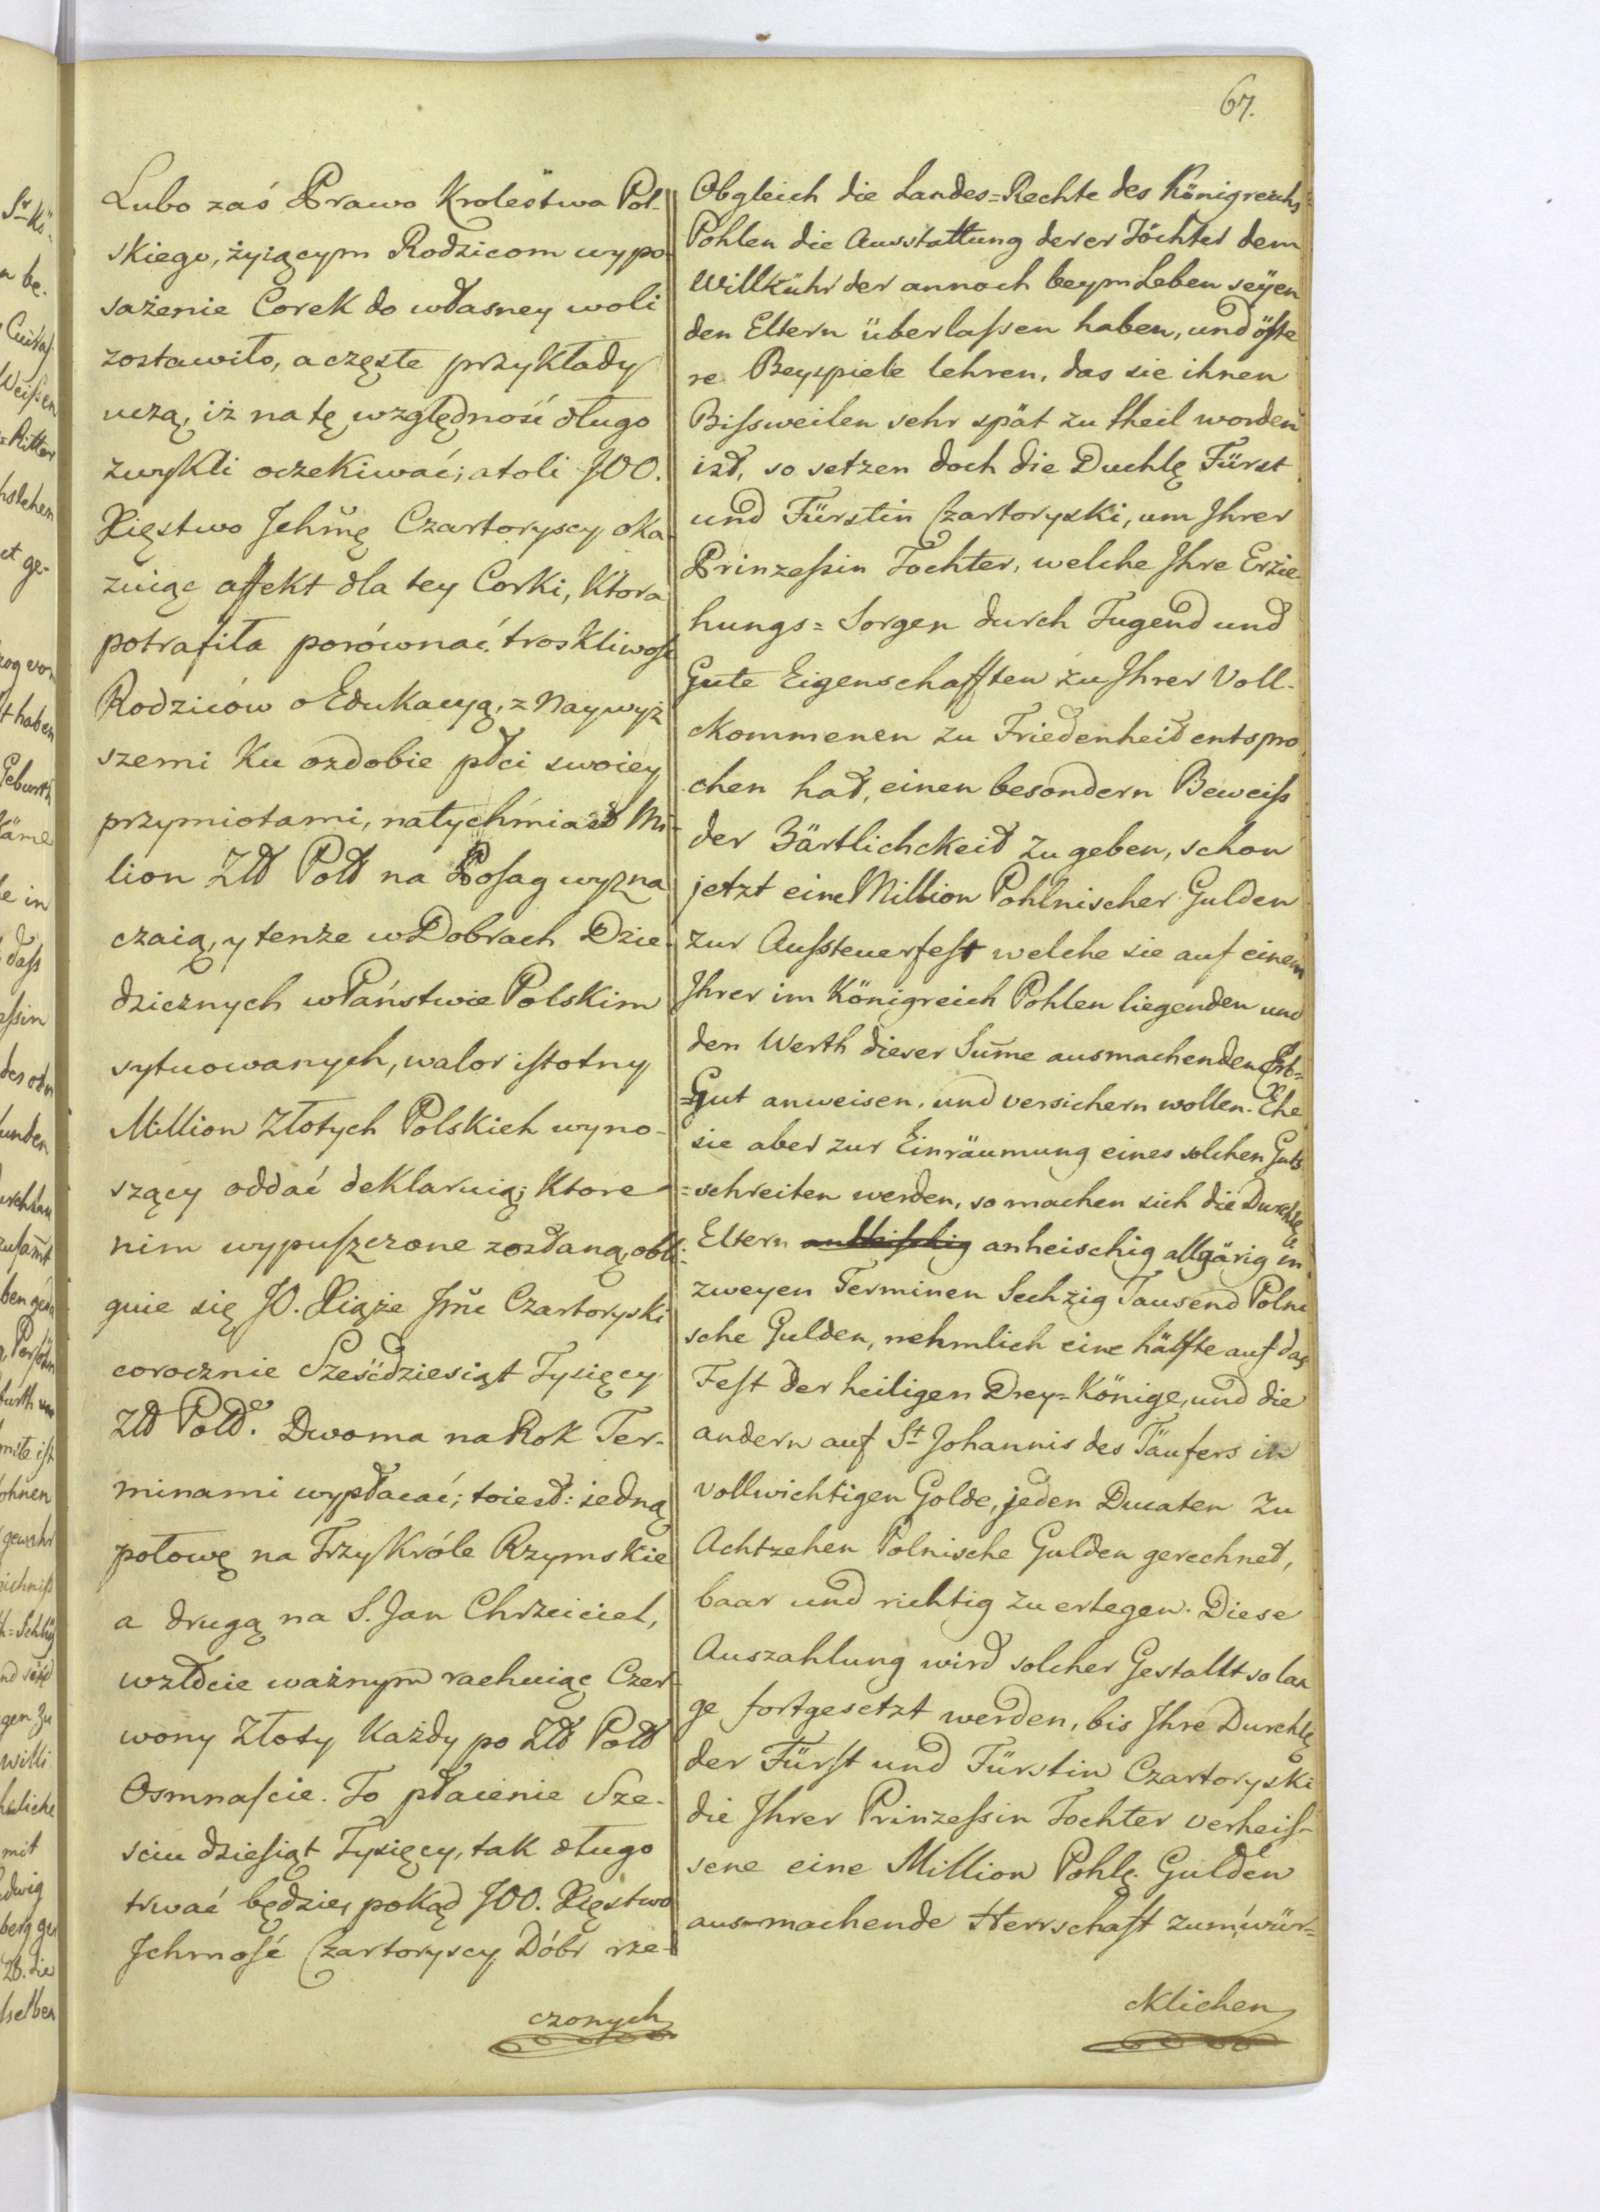 67.
Lubo zaś Prawo Krolestwa Pol-
skiego, żyiącym Rodzicom wypo-
sażenie Corek do własney woli
zostawiło, a częste przykłady
uczą, iż na tę względność długo
zwykli oczekiwać; atoli JOO.
Xięstwo Jchmę Czartoryscy oka-
zuiąc affekt dla tey Corki, ktora
potrafiła porównać troskliwość
Rodziców o Edukacyą, z Naywyż
szemi ku ozdobie płci swoiey
przymiotami, natychmiast Mi-
lion Złł Poł na Posag wyzna
czaią, y tenże w Dobrach Dzie-
dzicznych w Państwie Polskim
sytuowanych, walor istotny
Million Złotych Polskich wyno-
szący oddać deklaruią; Ktore
nim wypuszczone zozstaną, obli-
guie się JO. Xiąże Jmć Czartoryski
corocznie Sześćdziesiąt Tysięcy
Złł Pold. Dwoma na Rok Ter-
minami wypłacać; toiest: iedną
połowę na Trzy Króle Rzymskie
a drugą na S. Jan Chrzciciel,
wzłocie ważnym rachuiąc Czer-
wony Złoty Każdy po Złł Poł
Osmnaście. To płacenie Sze-
sciu dziesiąt Tysięcy, tak długo
trwać będzie, pokąd JOO. Xięstwo
Jchmość Czartoryscy Dóbr rze-
czonych
Obgleich die Landes=Rechte des Königreichs
Pohlen die Ausstattung derer Töchter dem
Willkühr der annoch beym Leben seyen
den Eltern überlaßen haben, und öfte
re Beyspiele lehren, das sie ihnen
Bißweilen sehr spät zu theil worden
ist, so setzen doch die Duchlę Fürst
und Fürstin Czartoryski, um Jhrer
Prinzeßin Tochter, welche Jhre Erzie-
hungs=Sorgen durch Tugend und
Gute Eigenschafften zu Jhrer Voll-
ckommenen zu Friedenheit entspro
chen hat, einen besondern Beweiß
der Zärtlichckeit zu geben, schon
jetzt eine Million Pohlnischer Gulden
zur Außsteuer fest welche sie auf einem
Jhrer im Königreich Pohlen liegenden und
den Werth dieser Sume ausmachenden Erb=
=Gut anweisen, und versichern wollen. Ehe
sie aber zur Einräumung eines solchen Guts
=schreiten werden, so machen sich die Durchlę
Eltern anheischig allgärig in
zweyen Terminen Sechzig Tausend Polni
sche Gulden, nehmlich eine hälfte auf das
Fest der heiligen Drey=Könige, und die
andern auf St Johannis des Täufers in
vollwichtigen Golde, jeden Ducaten zu
Achtzehen Polnische Gulden gerechnet,
baar und richtig zu erlegen. Diese
Auszahlung wird solcher Gestallt so lan
ge fortgesetzt werden, bis Jhre Durchlę
der Fürst und Fürstin Czartoryski
die Jhrer Prinzeßin Tochter verheiß-
sene eine Million Pohlę. Gulden
aus=machende Herrschaft zum wür=
cklichen